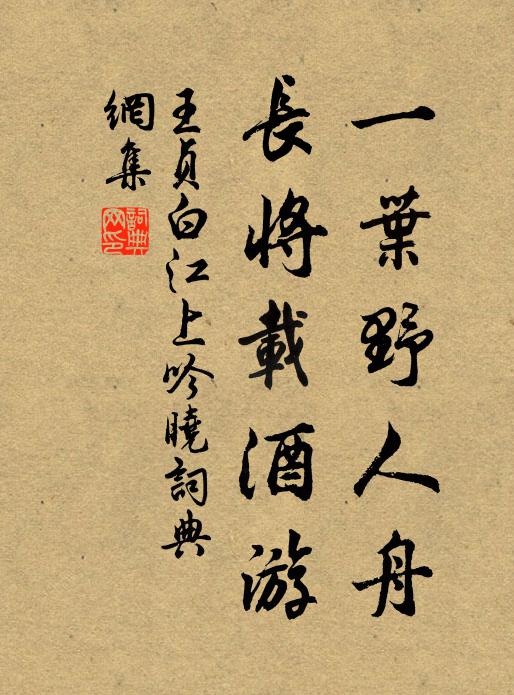 一葉野人舟
長將載酒游
王貞白江上吟曉詞典
網集
詞典
网印